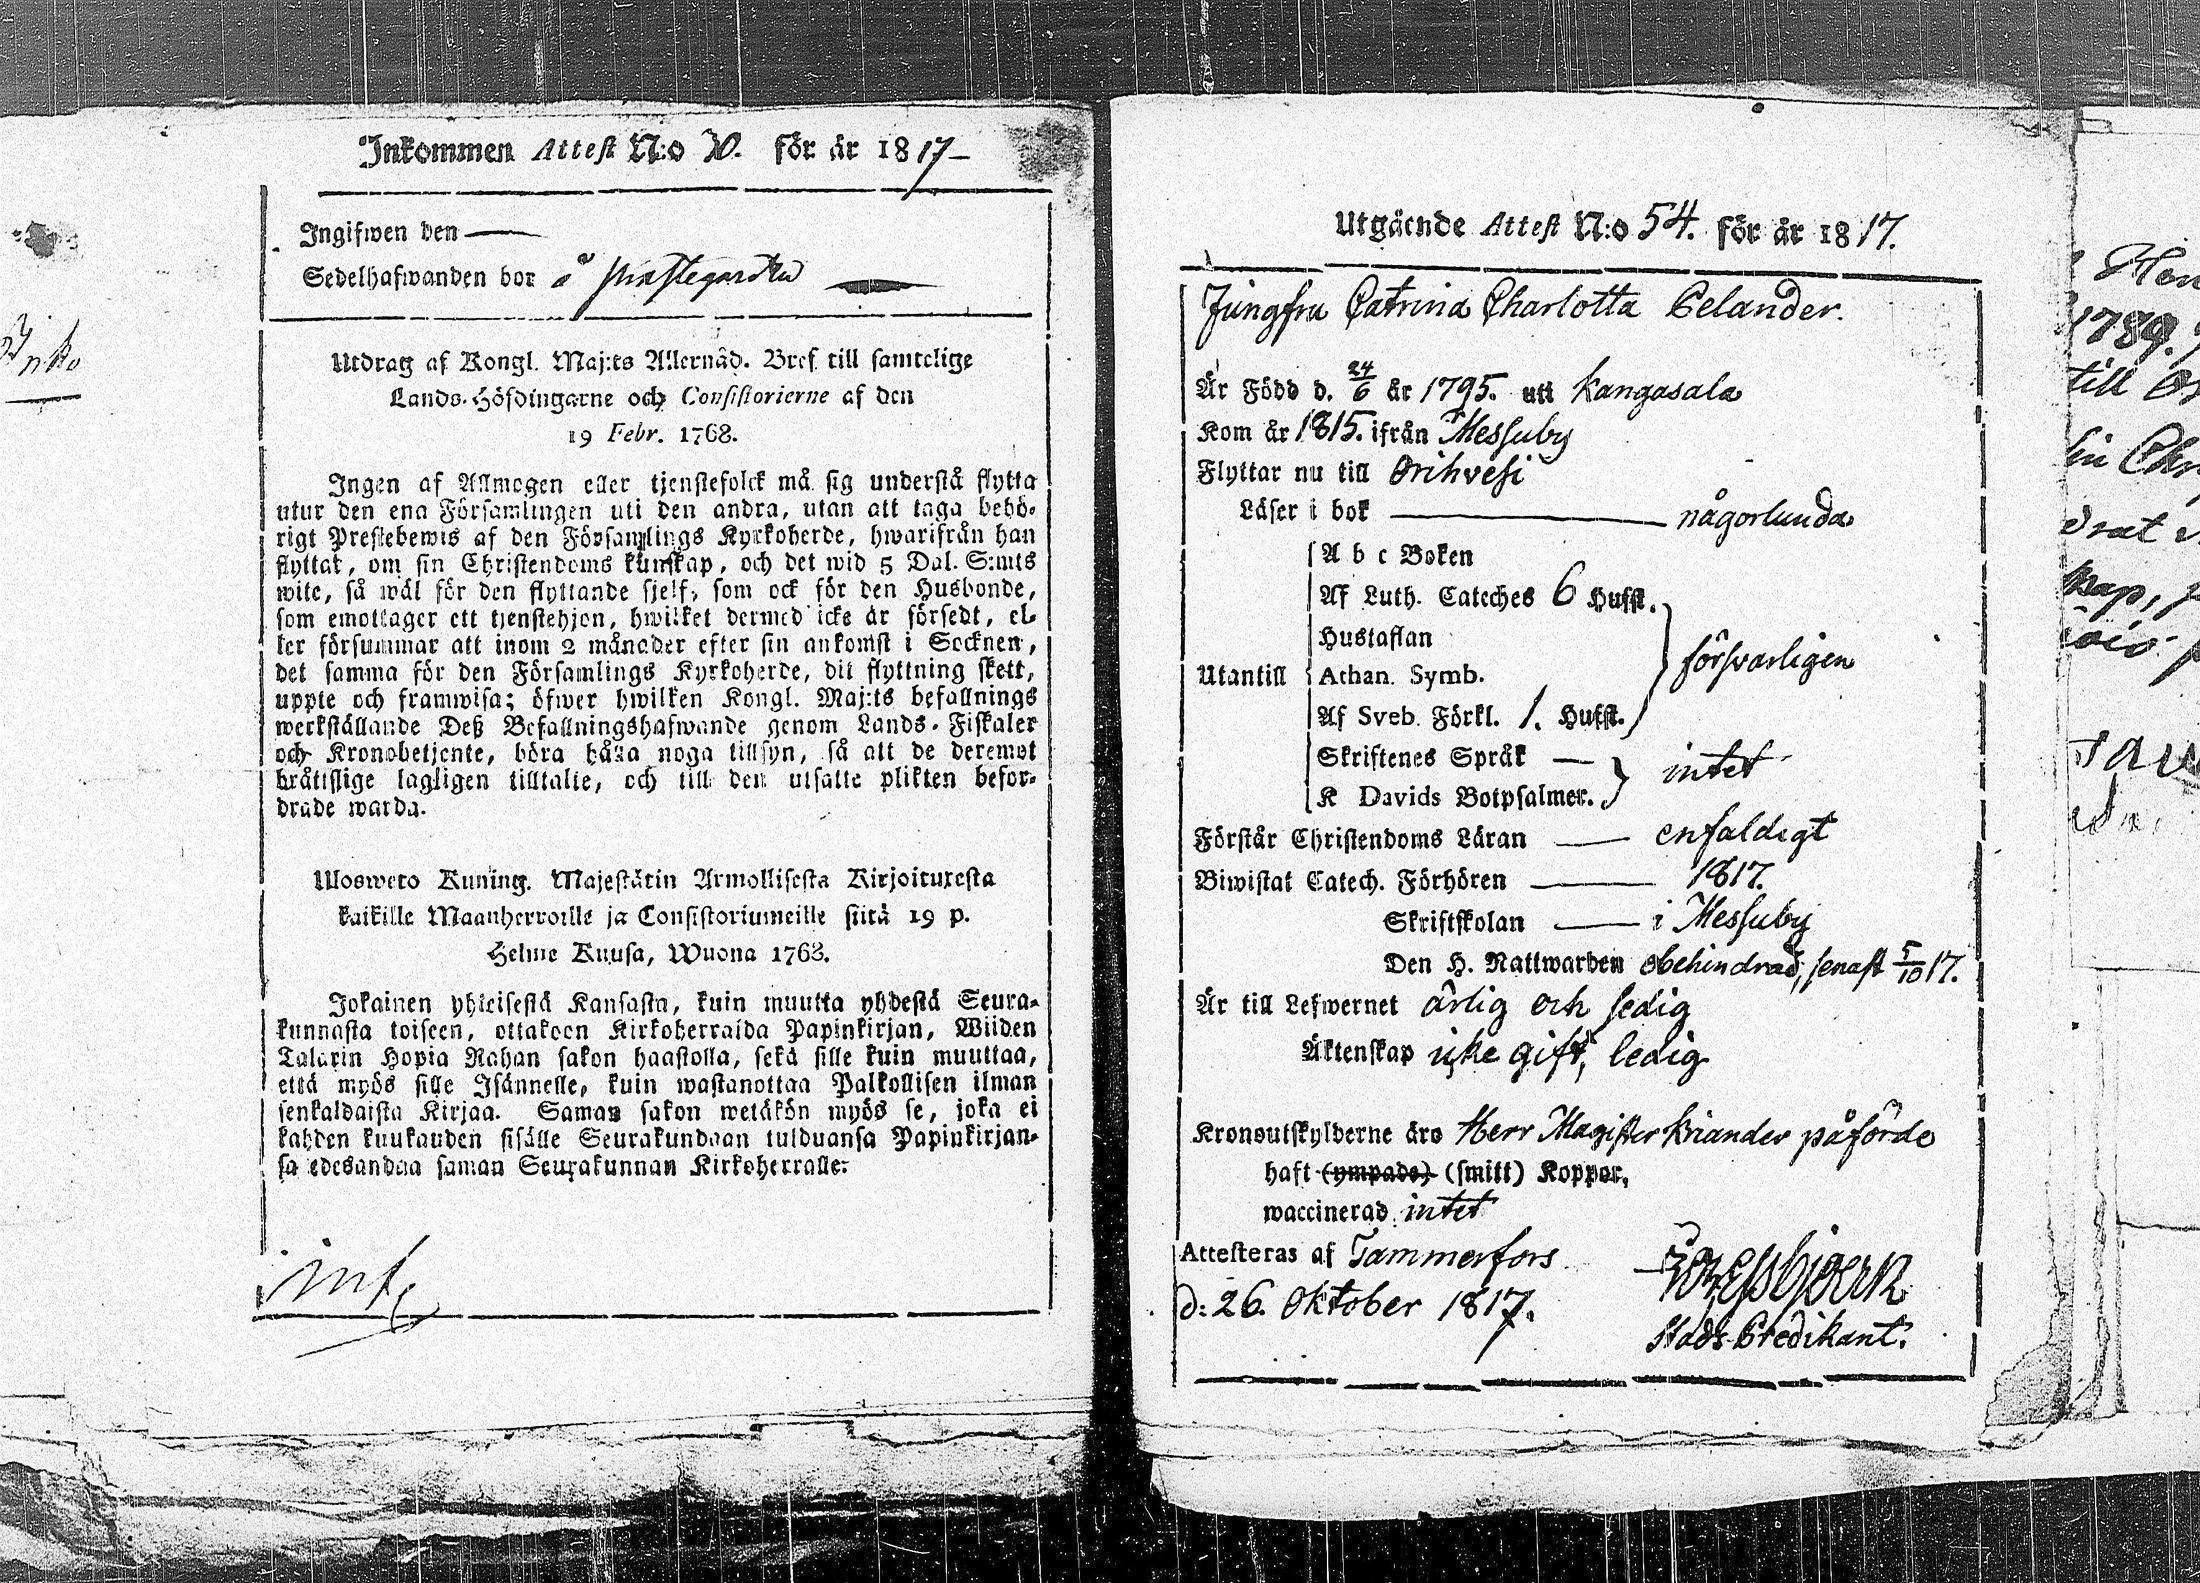 Inkommen Attest N:o för år 1817
Ingifwen den
Sedelhafwanden bor å
Utdrag af Kongl. Maj:ts Allernåd. Bref till samtelige
Lands-Höfdingarne och Consistorierne af den
19 Febr. 1768.
Ingen af Allmogen eller tjenstefolck må sig understå flytta
utur den ena Församlingen uti den andra, utan att taga behö-
rigt Prestebewis af den Församlings Kyrkoherde, hwarifrån han
flyttat, om sin Christendoms kunskap, och det wid 5 Dal. S:mts
wite, så wäl för den flyttande sjelf, som ock för den Husbonde,
som emottager ett tjenstehjon, hwilket dermed icke är försedt, el-
ler försummar att inom 2 månader efter sin ankomst i Socknen,
det samma för den Församlings Kyrkoherde, dit flyttning skett,
uppte och framwisa; öfwer hwilken Kongl. Maj:ts befallnings
werkställande Deß Befallningshafwande genom Lands-Fiskaler
och Kronobetjente, böra hålla noga tillsyn, så att de deremot
bråttslige lagligen tilltalte, och till den utsatte plikten befor-
drade warda.
Ulosweto Kuning. Majestätin Armollisesta Kirjoituxesta
kaikille Maanherroille ja Consistoriumeille siitä 19 p.
Helme Kuusa, Wuona 1768.
Jokainen yhteisestä Kansasta, kuin muutta yhdestä Seura-
kunnasta toiseen, ottakoon Kirkoherralda Papinkirjan, Wiiden
Talarin Hopia Rahan sakon haastolla, sekä sille kuin muuttaa,
että myös sille Isännelle, kuin wastanottaa Palkollisen ilman
senkaldaista Kirjaa. Saman sakon wetäkön myös se, joka ei
kahden kuukauden sisälle Seurakundaan tulduansa Papinkirjan-
sa edesandaa saman Seurakunnan Kirkoherralle.
Utgående Attest N:o 54. för år 1817.
Jungfru Catrina Charlotta Celander.
Är Född d. 24/6 år 1795. uti Kangasala
Kom år 1815. ifrån Messuby
Flyttar nu till Orihvesi
Läser i bok någorlunda
A b c Boken
Af Luth. Cateches 6 Hufst.
Hustaflan
Utantill Athan. Symb. försvarligen
Af Sveb. Förkl. 1. Hufst.
Skriftenes Språk — intet
K Davids Botpsalmer.
Förstår Christendoms Läran — enfaldigt
Biwistat Catech. Förhören — 1817.
Skriftskolan — i Messuby
Den H. Nattwarden obehindrad, senast 5/10 17.
Är till Lefwernet ärlig och sedig
Äktenskap icke gift, ledig
Kronoutskylderne äro Herr Magister Kriander påförde
haft (ympade) (smitt) Koppor,
waccinerad intet
Attesteras af Tammerfors
d: 26. Oktober 1817.
Stads Predikant.
1789.
till